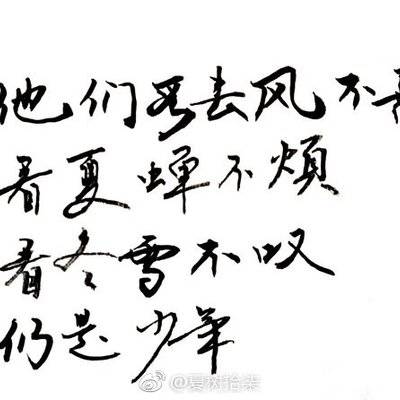 他们去风不
看夏蝉不煩
看冬雪不叹
仍是少年
@夏树拾柒